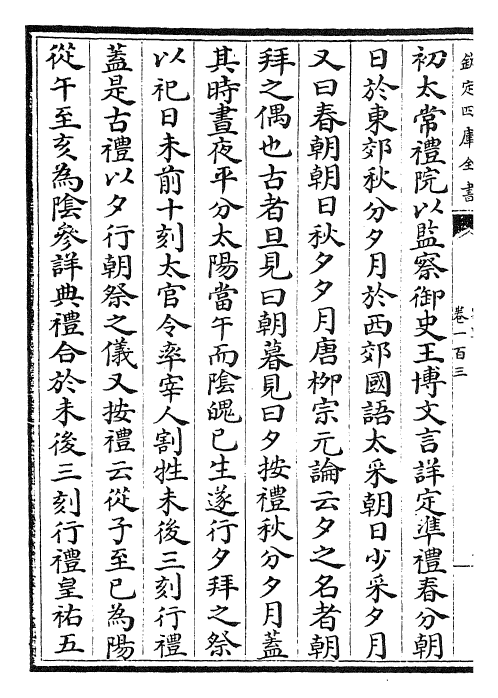 欽定四庫全書
卷一百三
初太常禮院以監察御史王博文言詳定準禮春分朝
日於東郊秋分夕月於西郊國語太采朝日少采夕月
又曰春朝朝日秋夕夕月唐柳宗元論云夕之名者朝
拜之偶也古者旦見曰朝暮見曰夕按禮秋分夕月蓋
其時晝夜平分太陽當午而陰魄已生遂行夕拜之祭
以祀日未前十刻太官令率宰人割牲未後三刻行禮
蓋是古禮以夕行朝祭之儀又按禮云從子至巳為陽
從午至亥為陰參詳典禮合於未後三刻行禮皇祐五